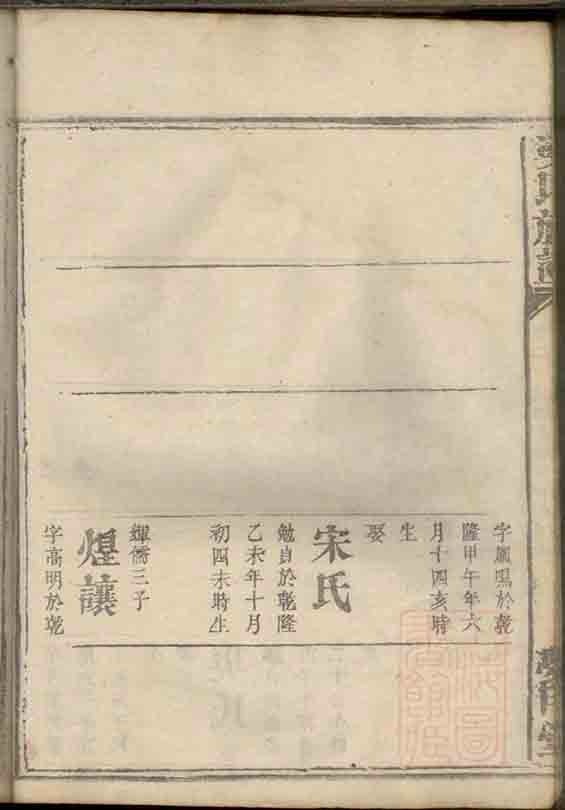 氏族譜
字鳳賜於乾
隆甲午年六
月十四亥時
生
娶
宋氏
勉自於乾隆
乙未年十月
初四未時生
輝儒三子
煜讓
字高明於乾